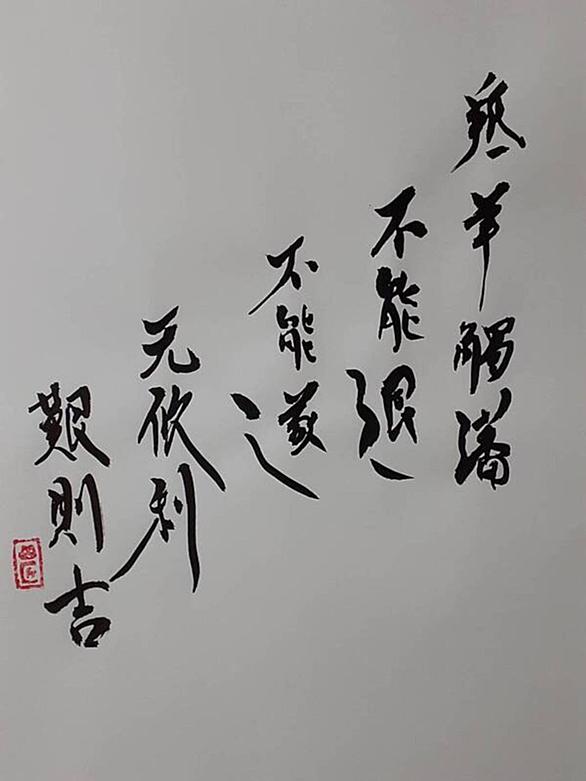 羝羊觸藩
不能退
不能遂
无攸利
艱則吉